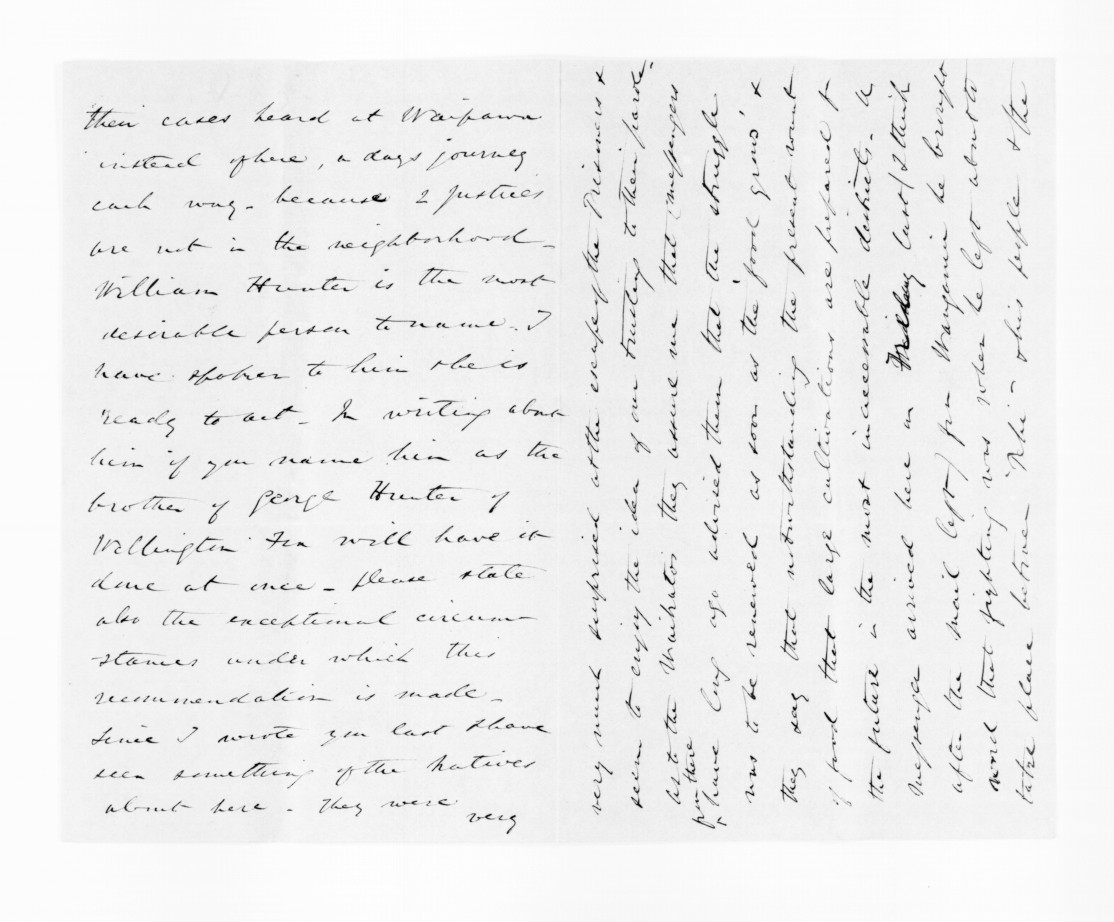 their cases heard at Waipawa
instead of here, a days journey
each way - because 2 Justices
are not in the neighborhood -
William Hunter is the most
desirable person to name - I
have spoken to him & he is
ready to act - In writing about
him if you name him as the
brother of George Hunter of
Wellington Fox will have it
done at once - Please state
also the exceptional circum-
stances under which this
recommendation is made -
Since I wrote you last I have
seen something of the Natives
about here - They were
very
very much surprised at the escape of the Prisoners &
seem to enjoy the idea of our trusting to their parole -
As to the Waikatos they assure me that (messengers
from there
have long ago advised them that the struggle
was to be renewed as soon as the 'food grows' &
they say that notwithstanding the present want
of food that large cultivations are prepared for
the future in the most inaccessible districts - A
messenger arrived here on last (I think
after the mail left) from Wanganui he brought
word that fighting was when he left about to
take place between & his people & the